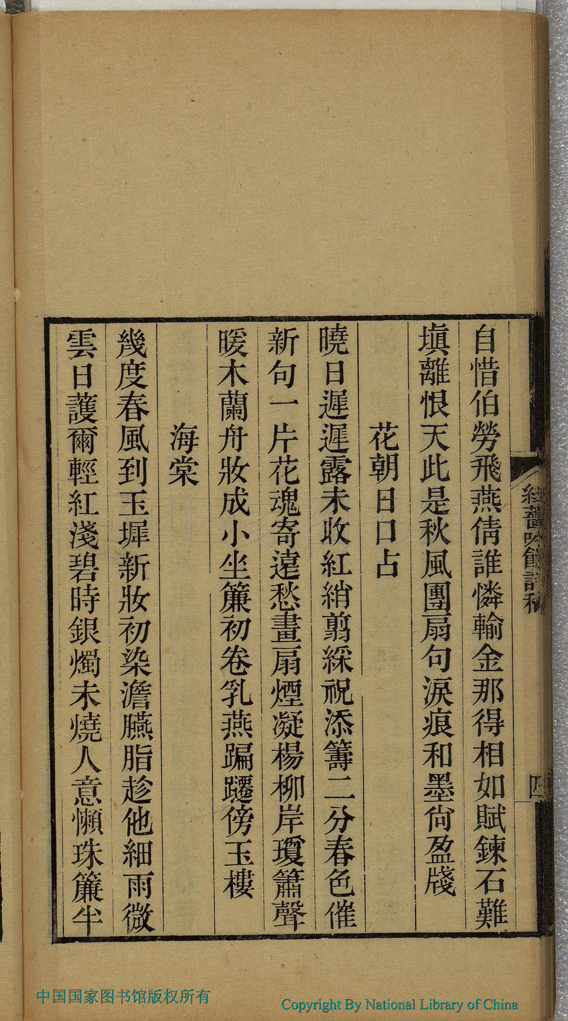 自惜伯勞飛燕倩誰憐輸金那得相如賦鍊石難
塡離恨天此是秋風團扇句淚痕和墨尙盈牋
花朝日口占
曉日遲遲露未收紅綃翦綵祝添籌二分春色催
新句一片花魂寄遠愁畫扇煙凝楊柳岸瓊簫聲
暖木蘭舟妝成小坐簾初卷乳燕蹁躚傍玉樓
海棠
幾度春風到玉墀新妝初染澹臙脂趁他細雨微
雲日護爾輕紅淺碧時銀燭未燒人意懶珠簾半
吟館詩稿
四
中国国家图书馆版权所有
Copyright By National Library of China